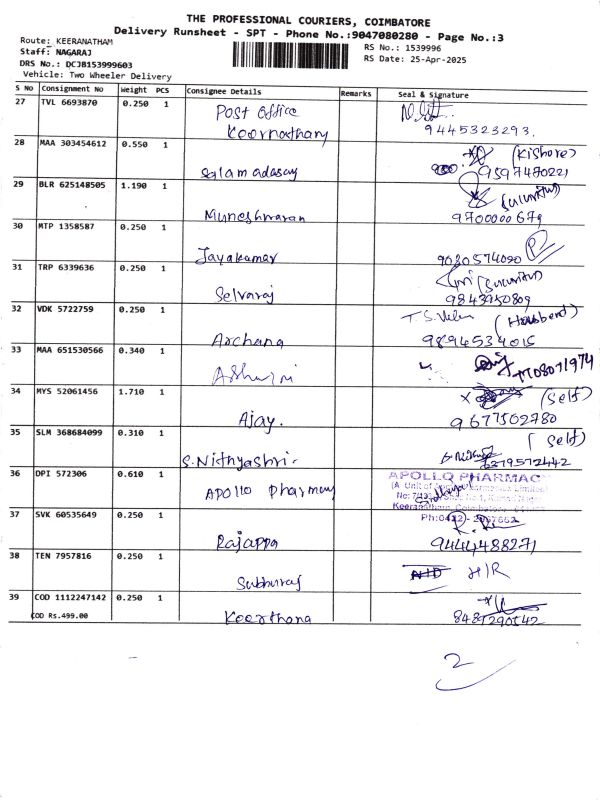 THE PROFESSIONAL COURIERS, COIMBATORE
Delivery Runsheet - SPT - Phone No.:9047080280 - Page No.:3
Route: KEERANATHAM
Staff: NAGARAJ
DRS No.: DCJB153999603
Vehicle: Two Wheeler Delivery
RS No.: 1539996
RS Date: 25-Apr-2025
S No Consignment No Weight PCS Consignee Details Remarks Seal & Signature
27 TVL 6693870 0.250 1 Post Office
Keernatham 9445323293.
28 MAA 303454612 0.550 1 (Kishore)
9597470221
29 BLR 625148505 1.190 1
Muneshwaran 9700000679
30 MTP 1358587 0.250 1
Jayakumar 9030574090
31 TRP 6339636 0.250 1
Selvaraj 9843950809
32 VDK 5722759 0.250 1 (Husbend)
Archana 9894534015
33 MAA 651530566 0.340 1
Ashwini
34 MYS 52061456 1.710 1 (Self)
Ajay. 9677502780
35 SLM 368684099 0.310 1 (Self)
S.Nithyashri. 6379572442
36 DPI 572306 0.610 1 APOLLO PHARMACY
Apollo Pharmacy
37 SVK 60535649 0.250 1
Rajappa 9444488271
38 TEN 7957816 0.250 1 H/R
Subburaj
39 COD 1112247142 0.250 1
COD Rs.499.00 Keerthana 8489290542
2